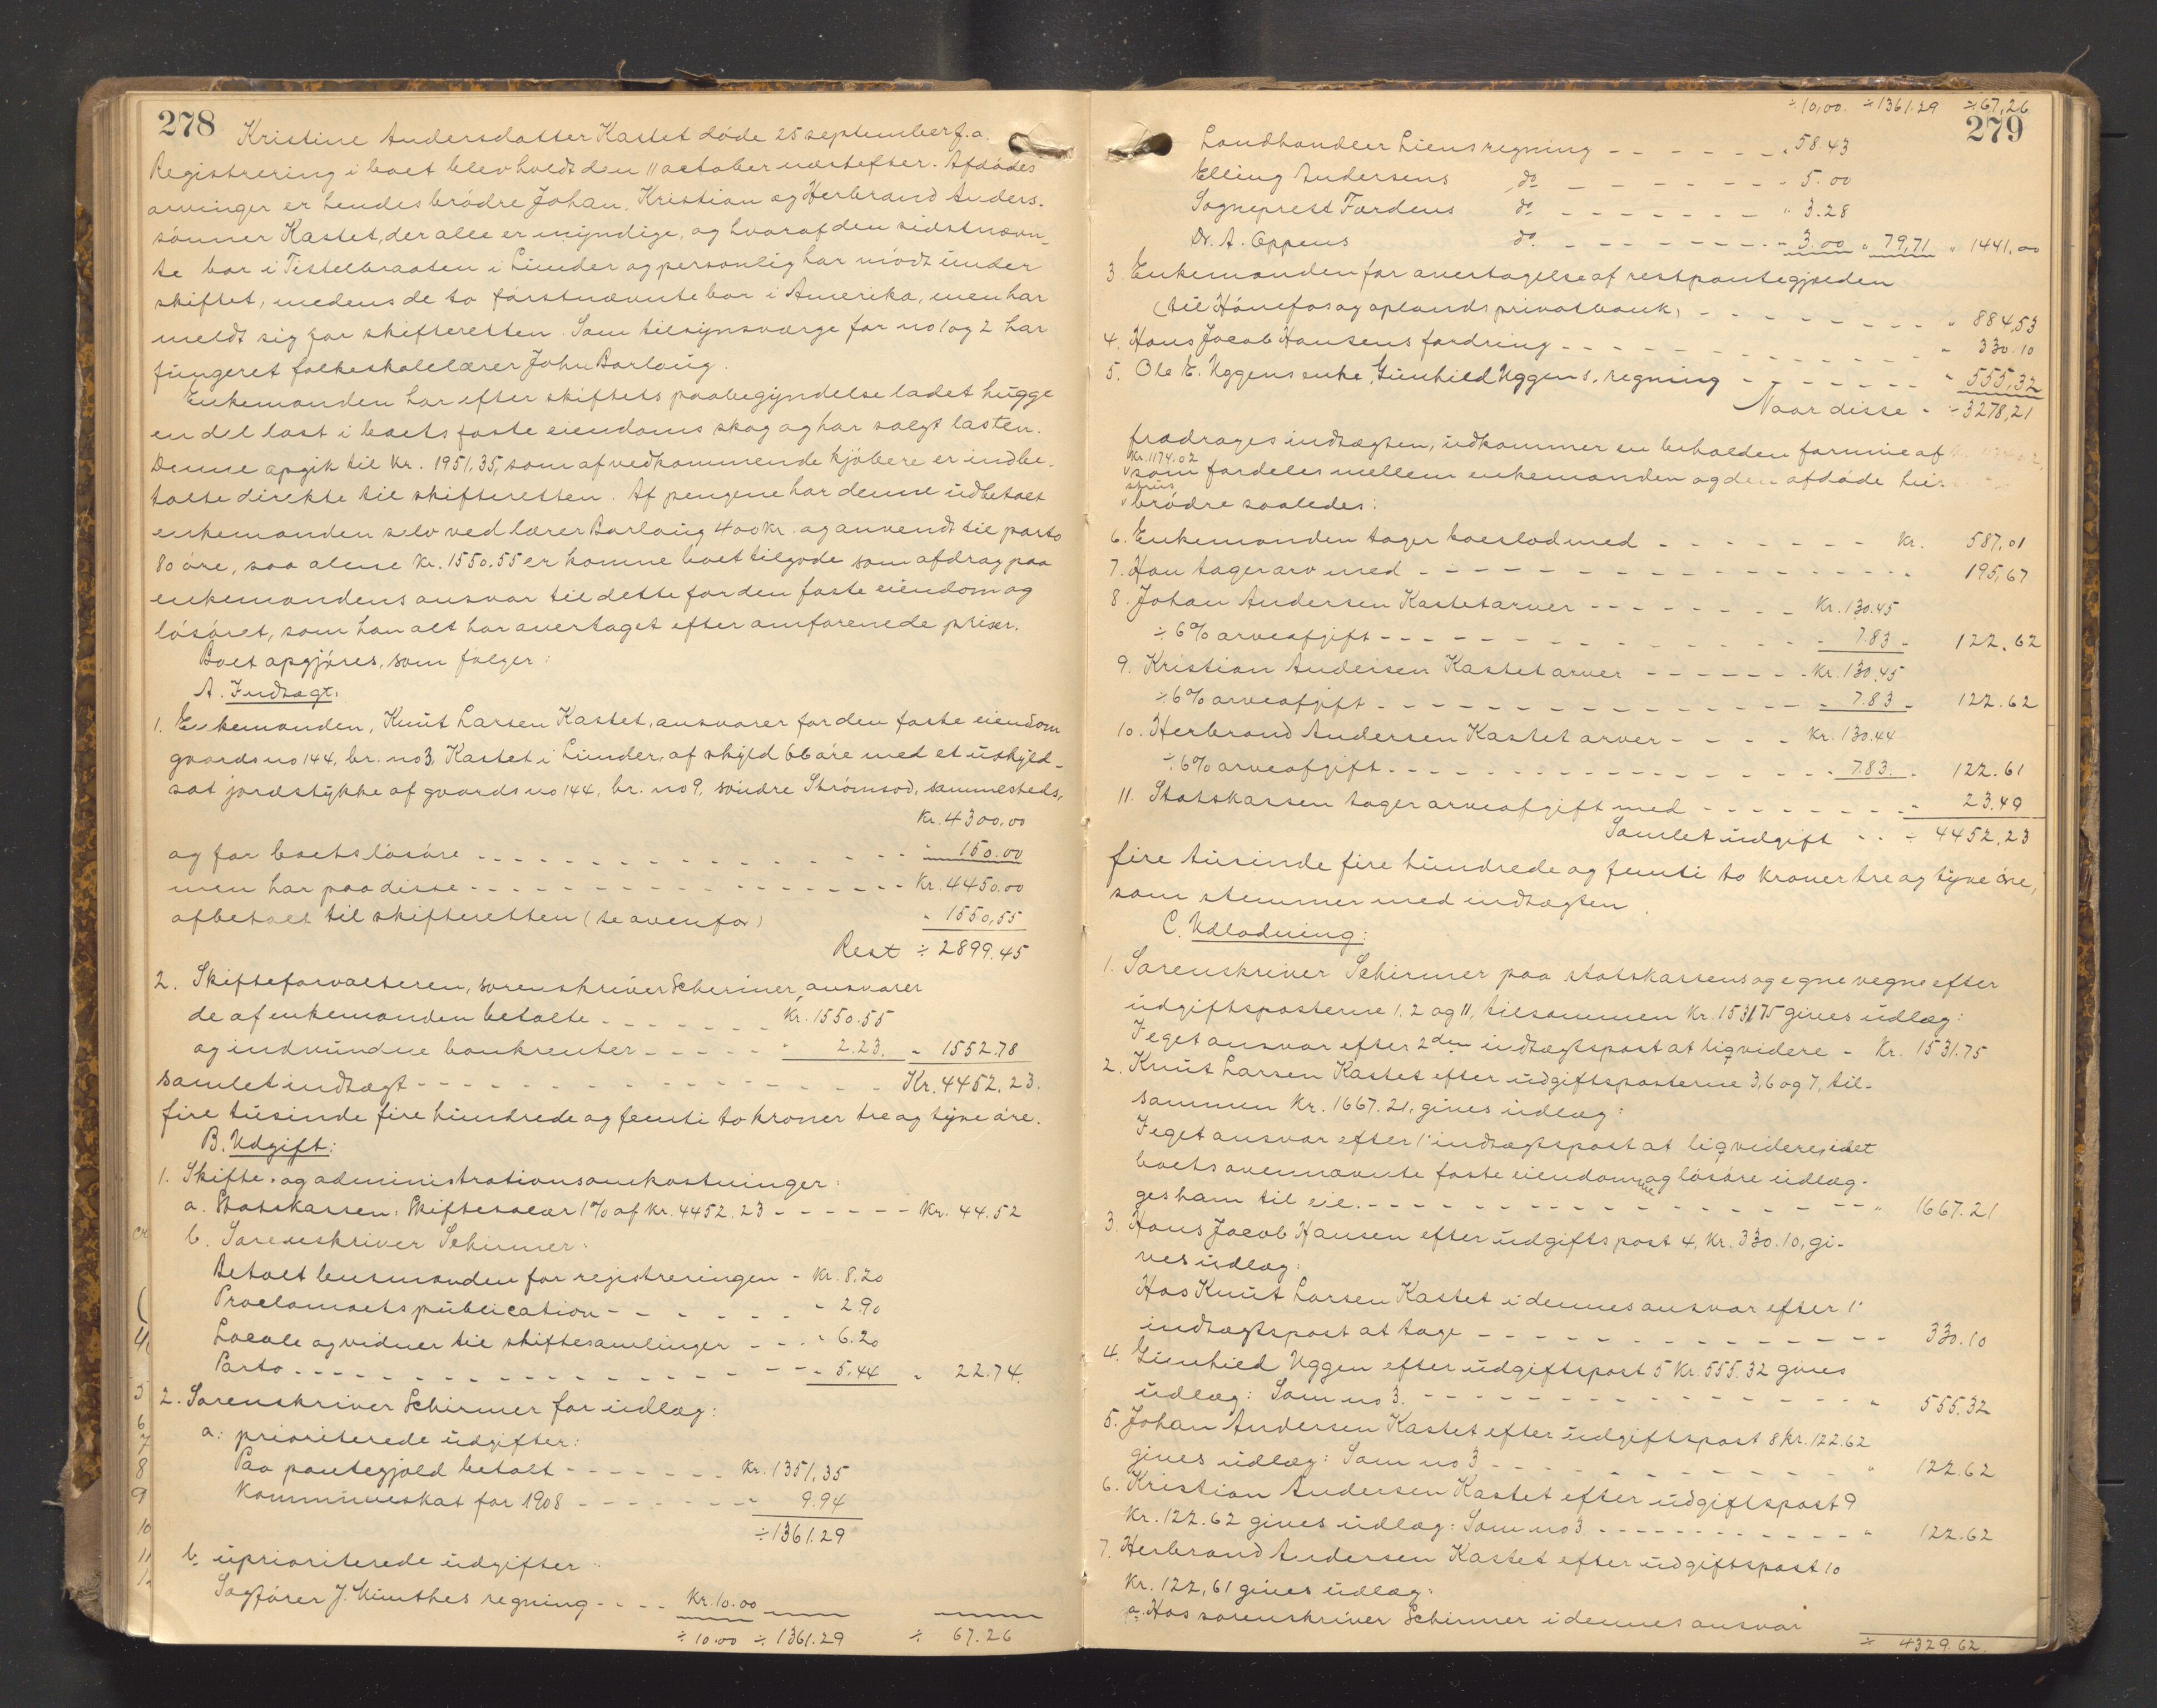 278
Kristine Andersdatter Kastet døde 25 september f.a.
Registrering i boet blev holdt den 11 october næstefter. Afdødes
arvinger er hendes brødre Johan, Kristian og Herbrand Anders-
sønner Kastet, der alle er myndige, og hvoraf den sidstnævn-
te bor i Tistelbraaten i Lunder og personlig har mødt under
skiftet, medens de to førstnævnte bor i Amerika, men har
meldt sig for skifteretten. Som tilsynsværge for no 1 og 2 har
fungeret folkeskolelærer John Borlaug.
Enkemanden har efter skiftets paabegyndelse ladet hugge
en del last i boets faste eiendoms skog og har solgt lasten.
Denne opgik til kr. 1951.35, som af vedkommende kjøbere er indbe-
talte direkte til skifteretten. Af pengene har denne udbetalt
enkemanden selv ved lærer Borlaug 400 kr. og anvendt til porto
80 øre, saa alene kr. 1550.55 er komne boet tilgode som afdrag paa
enkemandens ansvar til dette for den faste eiendom og
løsøret, som han alt har overtaget efter omforenede priser.
Boet opgjøres, som følger:
A. Indtægt:
1. Enkemanden, Knut Larsen Kastet, ansvarer for den faste eiendom
gaards no 144, br. no 3, Kastet i Lunder, af skyld 66 øre med et uskyld-
sat jordstykke af gaards no 144, br. no 9, søndre Strømsod, sammesteds,
Kr. 4300.00
og for boets løsøre - - - " 150.00
men har paa disse - - - Kr. 4450.00
afbetalt til skifteretten (se ovenfor) " 1550,55
Rest ÷ 2899.45
2. Skifteforvalteren, sorenskriver Schirmer, ansvarer
de af enkemanden betalte - - - Kr. 1550.55
og indvundne bankrenter - - - " 2.23. " 1552.78
samlet indtægt - - - Kr. 4452.23.
fire tusinde fire hundrede og femti to kroner tre og tyve øre.
B. Udgift:
1. Skifte- og administrationsomkostninger:
a. Statskassen: Skiftesalær 1% af kr. 4452.23 - - - Kr. 44.52
b. Sorenskriver Schirmer:
Betalt lensmanden for registreringen - Kr. 8.20
Proclamaets publication - - - " 2.90
Locale og vidner til skiftesamlinger - - - " 6.20
Porto - - - " 5.44 " 22.74.
2. Sorenskriver Schirmer for udlæg:
a: prioriterede udgifter:
Paa pantegjæld betalt - - - Kr. 1351,35
Kommuneskat for 1908 - - - " 9.94
÷ 1361.29
b. uprioriterede udgifter:
Sagfører J. Münthes regning - - - Kr. 10.00
÷ 10.00 ÷ 1361.29 ÷ 67.26
÷ 10,00. ÷ 1361.29 ÷ 67,26
279
Landhandler Liens regning - - - " 58.43
Elling Andersens do - - - " 5.00
Sogneprest Fardens do - - - " 3.28
Dr. A. Oppens do - - - " 3.00 " 79,71 " 1441,00
3. Enkemanden for overtagelse af restpantegjælden
(til Hønefos og oplands privatbank) - - - " 884,53
4. Hans Jacob Hansens fordring - - - " 330.10
5. Ole E. Uggens enke, Gunhild Uggens, regning - - - " 555,32
Naar disse - ÷ 3278,21
fradrages indtægten, udkommer en beholden formue af
Kr. 1174.02
som fordeles mellem enkemanden og den afdøde hu-
strus
brødre saaledes:
6. Enkemanden tager boeslod med - - - Kr. 587,01
7. Han tager arv med - - - 195,67
8. Johan Andersen Kastet arver - - - Kr. 130.45
÷ 6% arveafgift - - - 7.83 - 122.62
9. Kristian Andersen Kastet arver - - - Kr. 130.45
÷ 6% arveafgift - - - 7.83 - 122.62
10. Herbrand Andersen Kastet arver - - - Kr. 130.44
÷ 6% arveafgift - - - 7.83. - 122.61
11. Statskassen tager arveafgift med - - - " 23.49
Samlet udgift - - - 4452.23
fire tusinde fire hundrede og femti to kroner tre og tyve øre,
som stemmer med indtægten.
C. Udlodning:
1. Sorenskriver Schirmer paa statskassens og egne vegne efter
udgiftsposterne 1, 2 og 11, tilsammen Kr. 1531.75 gives udlæg:
I eget ansvar efter 2den indtægtspost at liqvidere - Kr. 1531.75
2. Knut Larsen Kastet efter udgiftsposterne 3, 6 og 7, til-
sammen Kr. 1667.21, gives udlæg:
I eget ansvar efter 1' indtægtspost at liqvidere, idet
boets ovennævnte faste eiendomme og løsøre udlæg-
ges ham til eie. - - - " 1667.21
3. Hans Jacob Hansen efter udgiftspost 4, Kr. 330.10, gi-
ves udlæg:
Hos Knut Larsen Kastet i dennes ansvar efter 1'
indtægtspost at tage - - - 330.10
4. Gunhild Uggen efter udgiftspost 5 Kr. 555.32 gives
udlæg: Som no 3. - - - " 555.32
5. Johan Andersen Kastet efter udgiftspost 8 kr. 122.62
gives udlæg: Som no 3 - - - " 122.62
6. Kristian Andersen Kastet efter udgiftspost 9
Kr. 122.62 gives udlæg: Som no 3. - - - " 122.62
7. Herbrand Andersen Kastet efter udgiftspost 10
Kr. 122,61 gives udlæg:
a. Hos sorenskriver Schirmer i dennes ansvar
÷ 4329.62.